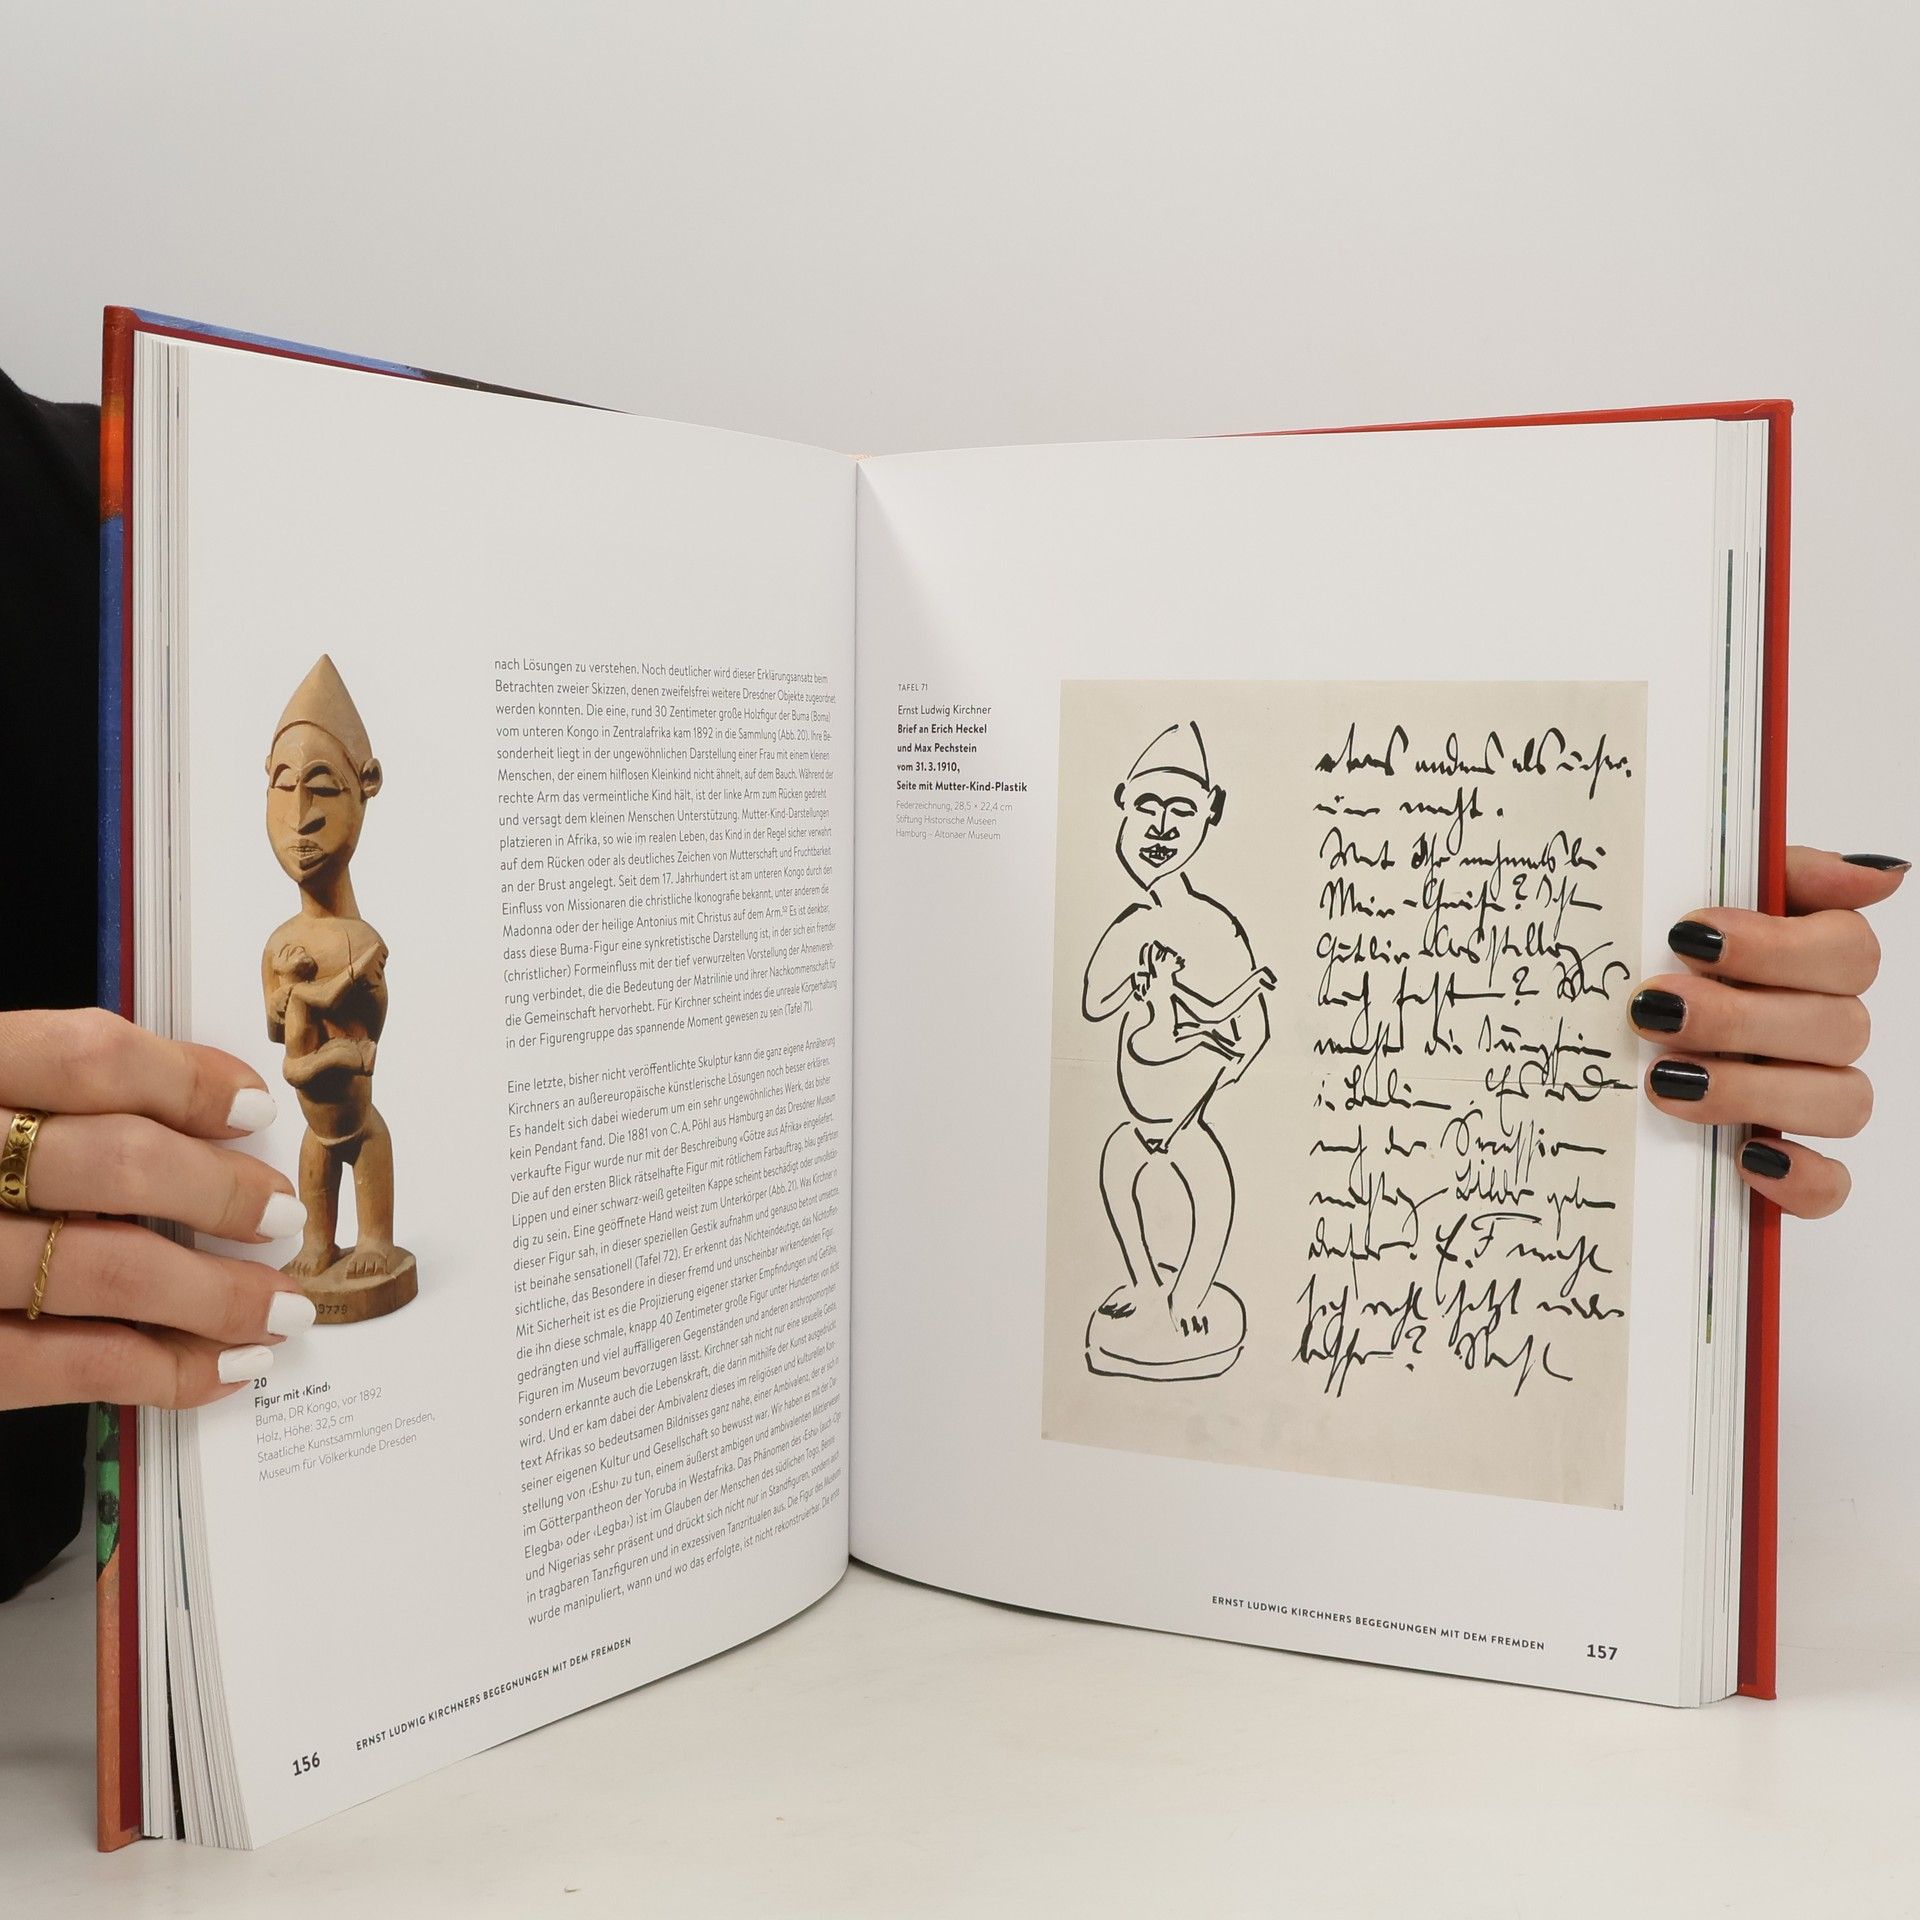 nach Lösungen zu verstehen. Noch deutlicher wird dieser Erklärungsansatz beim
Betrachten zweier Skizzen, denen zweifelsfrei weitere Dresdner Objekte zugeordnet
werden konnten. Die eine, rund 30 Zentimeter große Holzfigur der Buma (Boma)
vom unteren Kongo in Zentralafrika kam 1892 in die Sammlung (Abb. 20). Ihre Be-
sonderheit liegt in der ungewöhnlichen Darstellung einer Frau mit einem kleinen
Menschen, der einem hilflosen Kleinkind nicht ähnelt, auf dem Bauch. Während der
rechte Arm das vermeintliche Kind hält, ist der linke Arm zum Rücken gedreht
und versagt dem kleinen Menschen Unterstützung. Mutter-Kind-Darstellungen
platzieren in Afrika, so wie im realen Leben, das Kind in der Regel sicher verwahrt
auf dem Rücken oder als deutliches Zeichen von Mutterschaft und Fruchtbarkeit
an der Brust angelegt. Seit dem 17. Jahrhundert ist am unteren Kongo durch den
Einfluss von Missionaren die christliche Ikonografie bekannt, unter anderem die
Madonna oder der heilige Antonius mit Christus auf dem Arm.⁵² Es ist denkbar,
dass diese Buma-Figur eine synkretistische Darstellung ist, in der sich ein fremder
(christlicher) Formeinfluss mit der tief verwurzelten Vorstellung der Ahnenvereh-
rung verbindet, die die Bedeutung der Matrilinie und ihrer Nachkommenschaft für
die Gemeinschaft hervorhebt. Für Kirchner scheint indes die unreale Körperhaltung
in der Figurengruppe das spannende Moment gewesen zu sein (Tafel 71).
Eine letzte, bisher nicht veröffentlichte Skulptur kann die ganz eigene Annäherung
Kirchners an außereuropäische künstlerische Lösungen noch besser erklären.
Es handelt sich dabei wiederum um ein sehr ungewöhnliches Werk, das bisher
kein Pendant fand. Die 1881 von C. A. Pöhl aus Hamburg an das Dresdner Museum
verkaufte Figur wurde nur mit der Beschreibung «Götze aus Afrika» eingeliefert.
Die auf den ersten Blick rätselhafte Figur mit rötlichem Farbauftrag, blau gefärbten
Lippen und einer schwarz-weiß geteilten Kappe scheint beschädigt oder unvollstän-
dig zu sein. Eine geöffnete Hand weist zum Unterkörper (Abb. 21). Was Kirchner in
dieser Figur sah, in dieser speziellen Gestik aufnahm und genauso betont umsetzte,
ist beinahe sensationell (Tafel 72). Er erkennt das Nichteindeutige, das Nichtoffen-
sichtliche, das Besondere in dieser fremd und unscheinbar wirkenden Figur.
Mit Sicherheit ist es die Projizierung eigener starker Empfindungen und Gefühle,
die ihn diese schmale, knapp 40 Zentimeter große Figur unter Hunderten von dicht
gedrängten und viel auffälligeren Gegenständen und anderen anthropomorphen
Figuren im Museum bevorzugen lässt. Kirchner sah nicht nur eine sexuelle Geste,
sondern erkannte auch die Lebenskraft, die darin mithilfe der Kunst ausgedrückt
wird. Und er kam dabei der Ambivalenz dieses im religiösen und kulturellen Kon-
text Afrikas so bedeutsamen Bildnisses ganz nahe, einer Ambivalenz, der er sich in
seiner eigenen Kultur und Gesellschaft so bewusst war. Wir haben es mit der Dar-
stellung von ‹Eshu› zu tun, einem äußerst ambigen und ambivalenten Mitterwesen
im Götterpantheon der Yoruba in Westafrika. Das Phänomen des ‹Eshu› (auch ‹Ogo
Elegba› oder ‹Legba›) ist im Glauben der Menschen des südlichen Togo, Benins
und Nigerias sehr präsent und drückt sich nicht nur in Standfiguren, sondern auch
in tragbaren Tanzfiguren und in exzessiven Tanzritualen aus. Die Figur des Museums
wurde manipuliert, wann und wo das erfolgte, ist nicht rekonstruierbar. Die erste
3779
20
Figur mit ‹Kind›
Buma, DR Kongo, vor 1892
Holz, Höhe: 32,5 cm
Staatliche Kunstsammlungen Dresden,
Museum für Völkerkunde Dresden
156 ERNST LUDWIG KIRCHNERS BEGEGNUNGEN MIT DEM FREMDEN
TAFEL 71
Ernst Ludwig Kirchner
Brief an Erich Heckel
und Max Pechstein
vom 31.3.1910,
Seite mit Mutter-Kind-Plastik
Federzeichnung, 28,5 × 22,4 cm
Stiftung Historische Museen
Hamburg – Altonaer Museum
etwas anders als
macht.
auch fest? Was
macht die
in Berlin.
nach der Secession
Bilder geben
macht
sich wohl jetzt
besser?
ERNST LUDWIG KIRCHNERS BEGEGNUNGEN MIT DEM FREMDEN 157